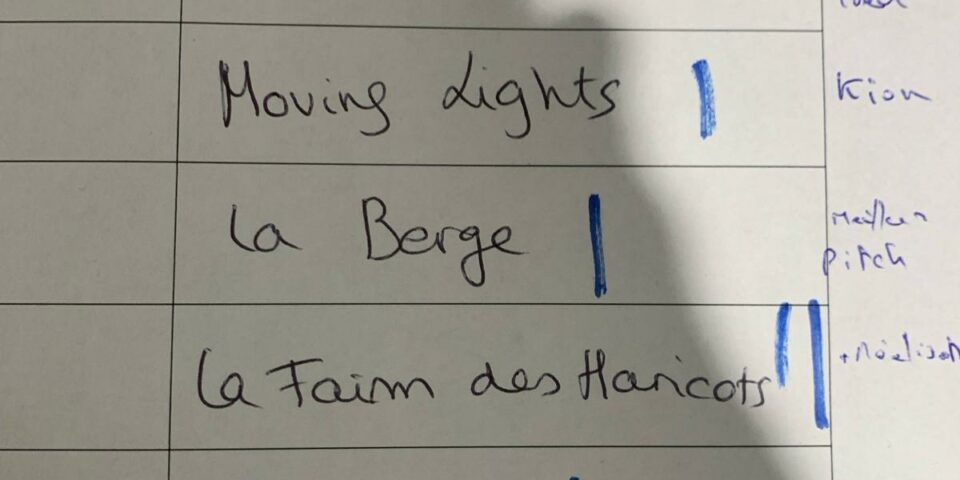 Moving Lights
Kion
La Berge
Meilleur
pitch
La Faim des Haricots